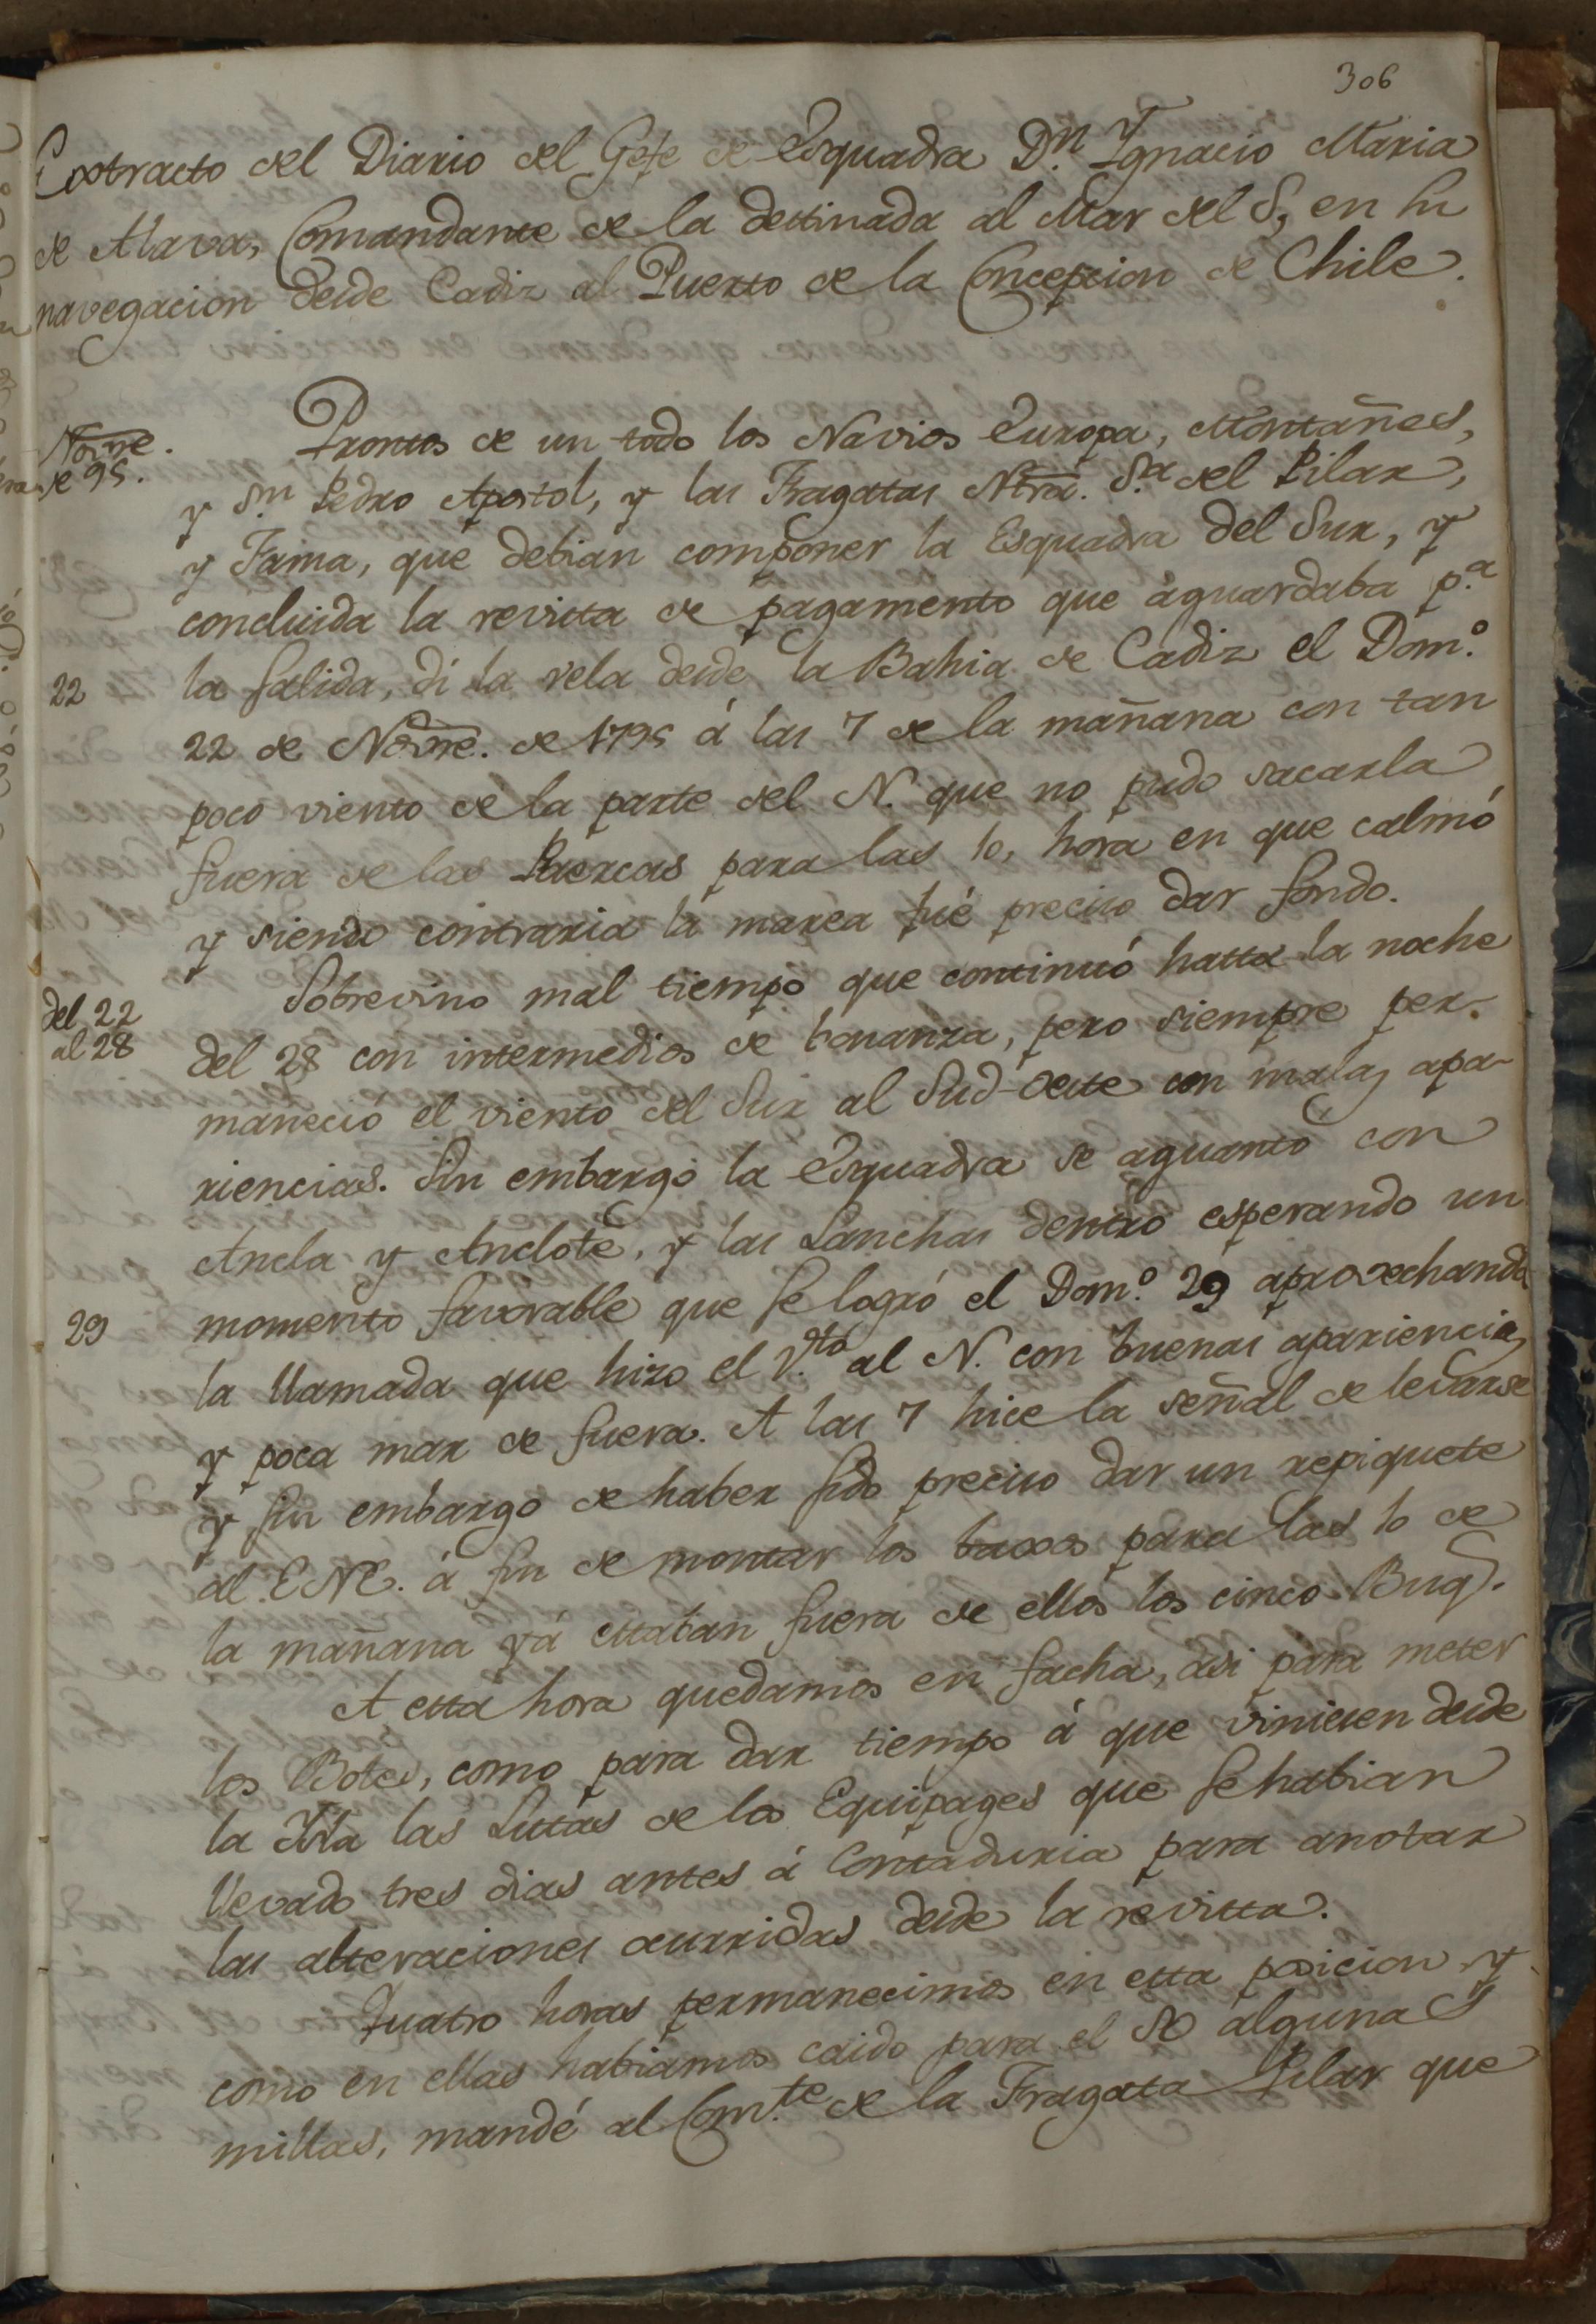 306
Extracto del Diario del Gefe de Esquadra Dn. Ignacio Maria
de Alava, Comandante de la destinada al Mar del S, en su
navegacion desde Cadiz al Puerto de la Concepcion de Chile.
Novre.
de 95.
Prontos de un todo los Navios Europa, Montañes,
y Sn Pedro Apostol, y las Fragatas Ntra. Sa. del Pilar,
y Fama, que debian componer la Esquadra del Sur, y
concluida la revista de pagamento que aguardaba pa.
22
la salida, di la vela desde la Bahia de Cadiz el Domo.
22 de Novre. de 1795 á las 7 de la mañana con tan
poco viento de la parte del N. que no pudo sacarla
fuera de las Puercas para las 10, hora en que calmó
y siendo contraria la marea fué preciso dar fondo.
del 22
al 28
Sobrevino mal tiempo que continuó hasta la noche
del 28 con intermedios de bonanza, pero siempre per-
maneció el viento del Sur al Sud-Oeste con malas apa-
riencias. Sin embargo la Esquadra se aguantó con
Ancla y Anclote, y las Lanchas dentro esperando un
29
momento favorable que se logró el Domo. 29 aprovechando
la llamada que hizo el Vto. al N. con buenas apariencias
y poca mar de fuera. A las 7 hice la señal de levarse
y sin embargo de haber sido preciso dar un repiquete
al ENE. á fin de montar los baxos para las 10 de
la mañana yá estaban fuera de ellos los cinco Buqs.
A esta hora quedamos en facha, asi para meter
los Botes, como para dar tiempo á que viniesen desde
la Isla las Listas de los Equipages que se habian
llevado tres dias antes á Contaduria para anotar
las alteraciones ocurridas desde la revista.
Quatro horas permanecimos en esta posicion y
como en ellas habiamos caido para el SO algunas
millas, mandé al Comte. de la Fragata Pilar que